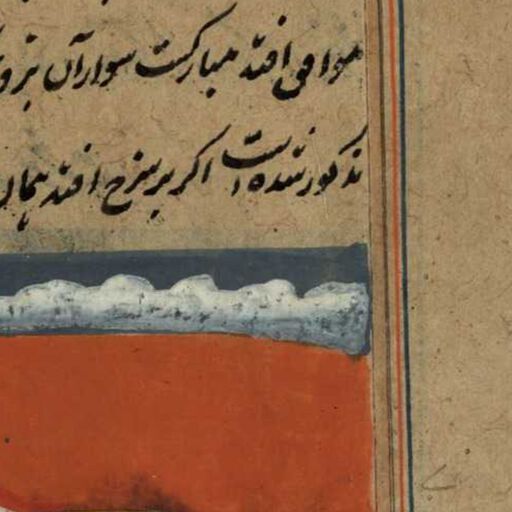 موافق افتد مبارکست سوار آن بزو
مذکور شده است اکر بر سرخ افتد همان